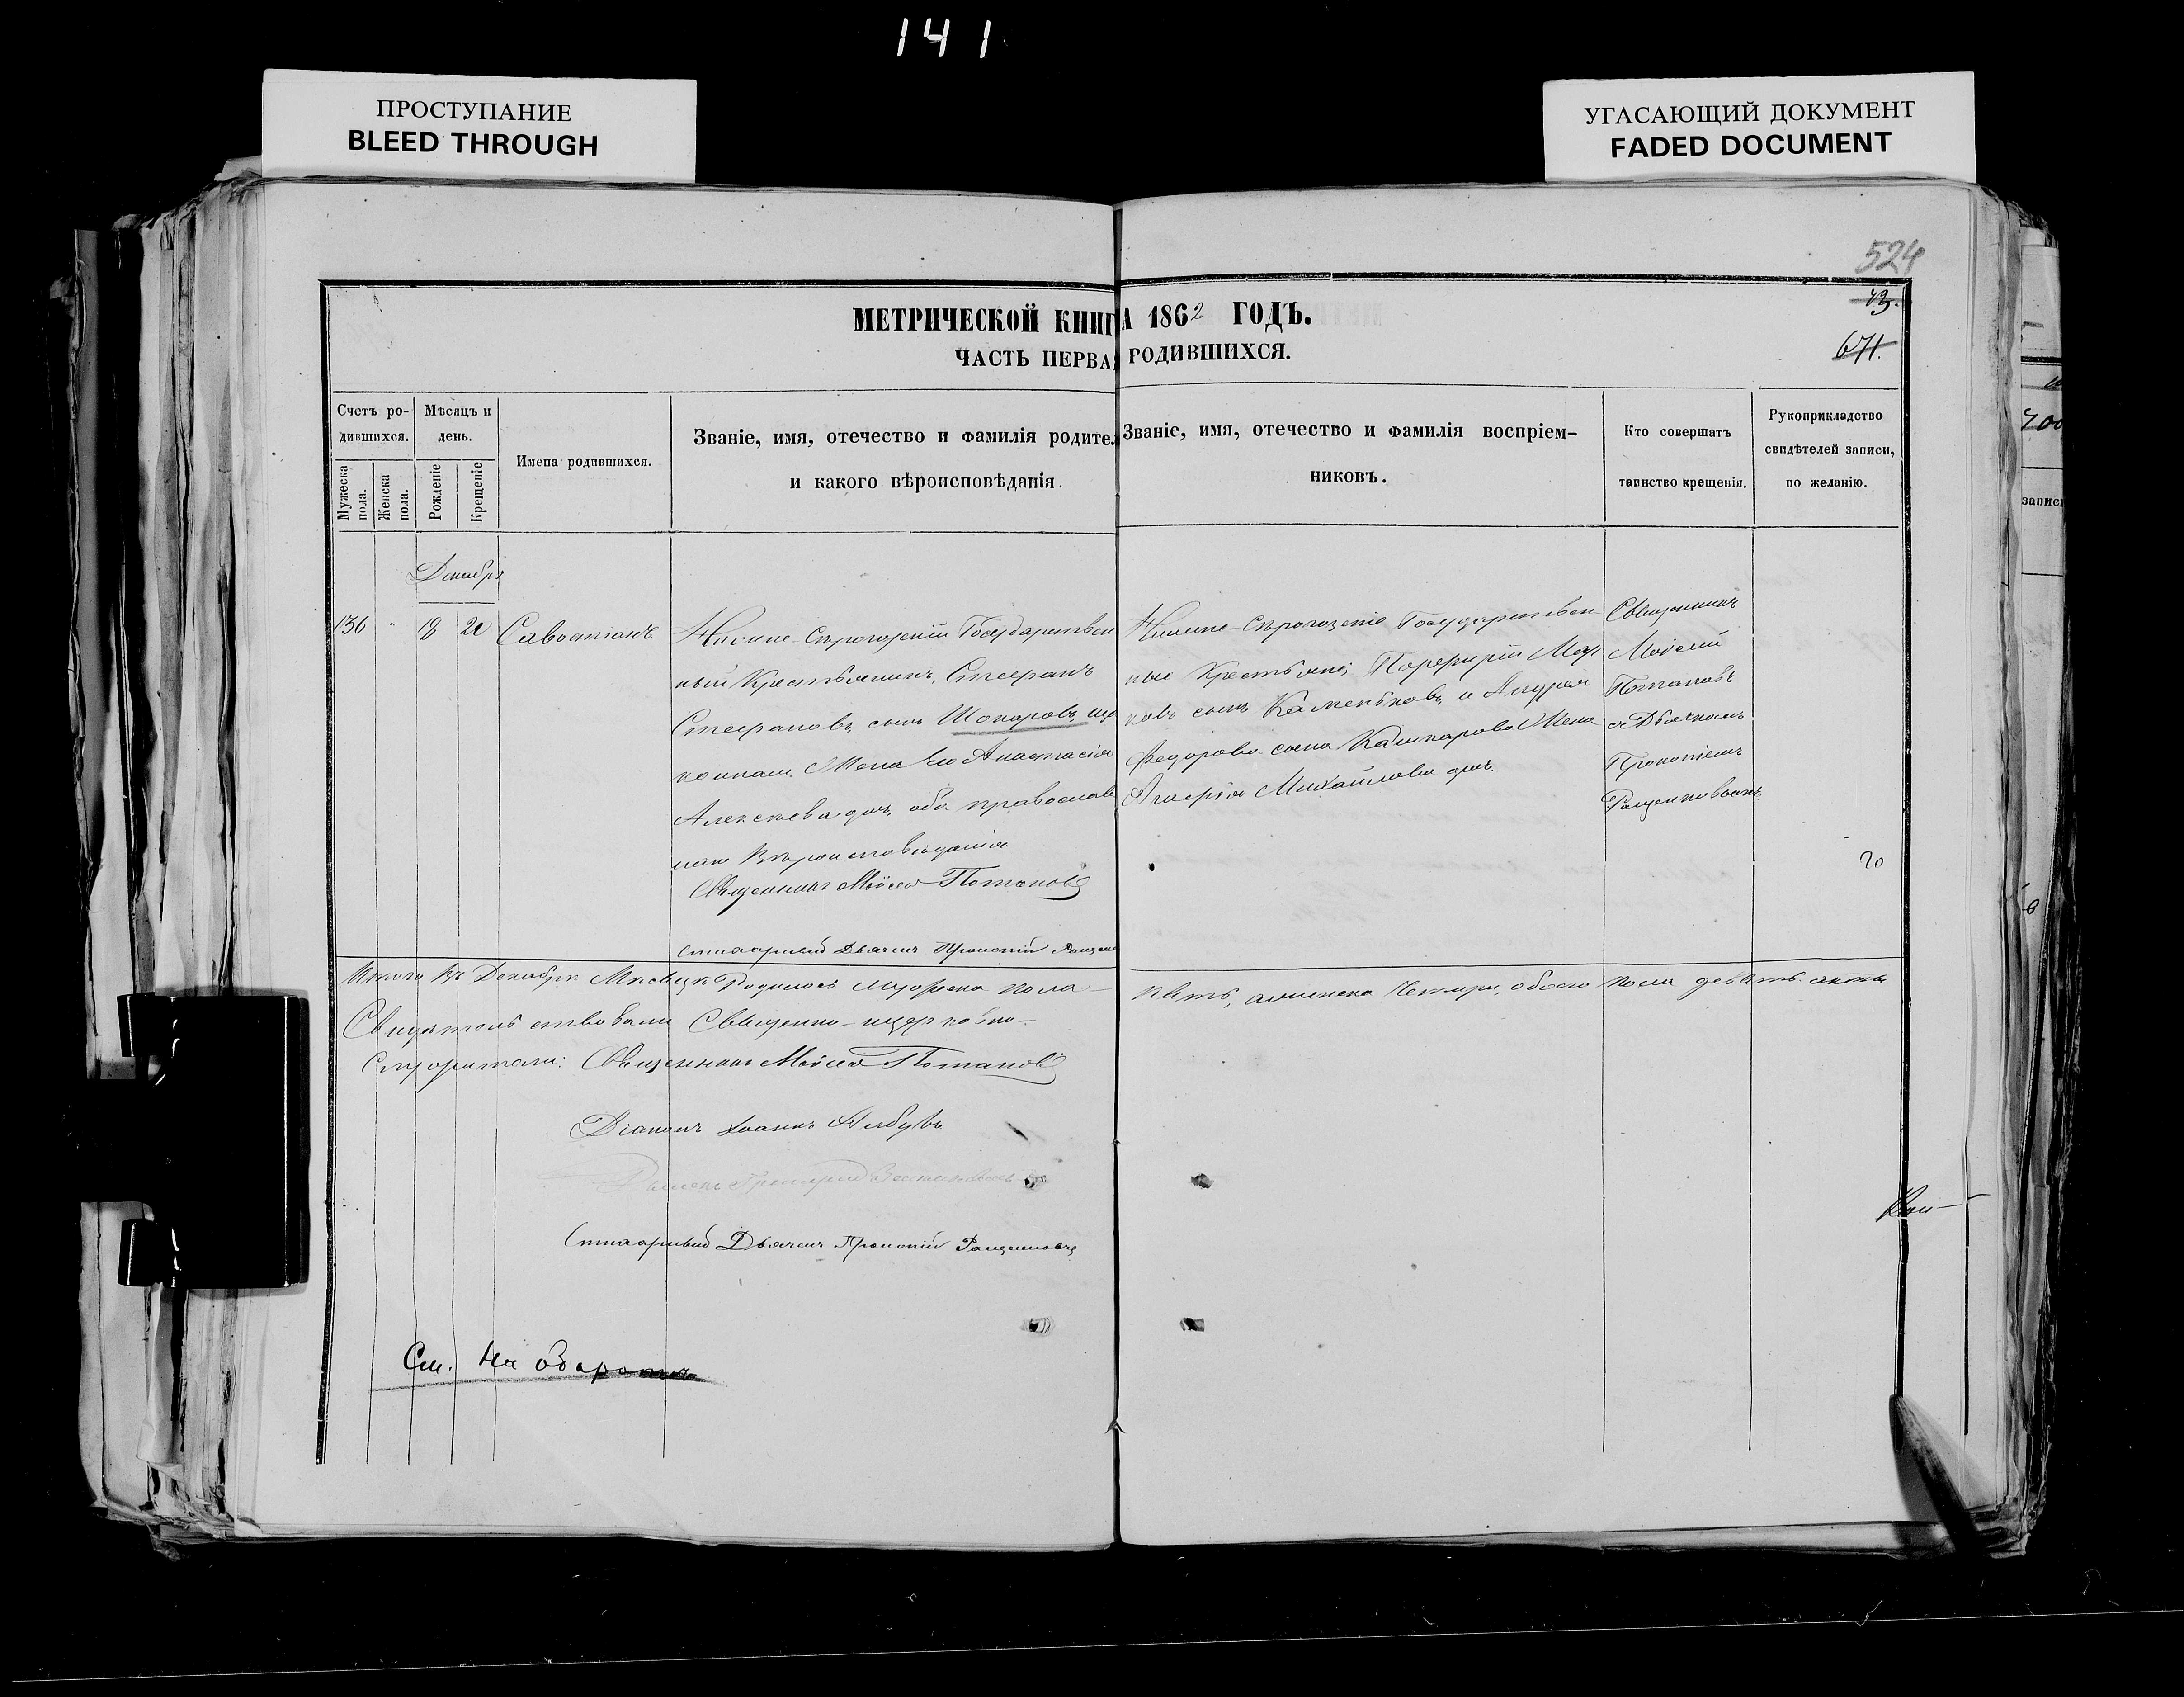 141
ПРОСТУПАНИЕ
BLEED THROUGH
УГАСАЮЩИЙ ДОКУМЕНТ
FADED DOCUMENT
524
43.
671.
МЕТРИЧЕСКОЙ КНИГ
ЧАСТЬ ПЕРВА
А 1862 ГОДЪ.
РОДИВШИХСЯ.
Счетъ ро-
дившихся.
Мужеска
пола.
Женска
пола.
Мѣсяцъ и
день.
Рожденіе
Крещеніе
Имена родившихся.
Званіе, имя, отечество и фамилія родите.
и какого вѣроисповѣданія.
Званіе, имя, отечество и фамилія воспріем-
никовъ.
Кто совершатъ
таинство крещенія.
Рукоприкладство
свидѣтелей записи,
по желанію.
Декабрь
136 " 18 20
Савостіанъ
Нижне-Сѣрогозскій Государствен
ный Крестьянинъ, Стефанъ
Стефановъ сынъ Шокаровъ, изъ
жена его Анастасія
Алексѣева дочь, оба православ
наго Вѣроисповѣданія
Священникъ Моѵсей Потаповъ
Дьячекъ Прокопій Ращен
Нижне-Сѣрогозскіе Государствен
ные Крестьяне; Порфирій Мар
ковъ сынъ Каменьковъ, и Андрея
Федорова сына Кашкарова Жена
Михайлова дочь.
Священникъ
Моісей
Потаповъ
съ Дьячкомъ
Прокопіемъ
Ращенковымъ
20
Итого въ Декабрѣ Мѣсяцѣ Родилось мужеска пола
пять, женска четыре, обоего пола девять
Свидѣтельствовали Священно-церковно-
служители: Священникъ Моѵсей Потаповъ
Діаконъ Іоаннъ
Дьячекъ Григорій
Дьячекъ Прокопій Ращенковъ
См. На оборотѣ